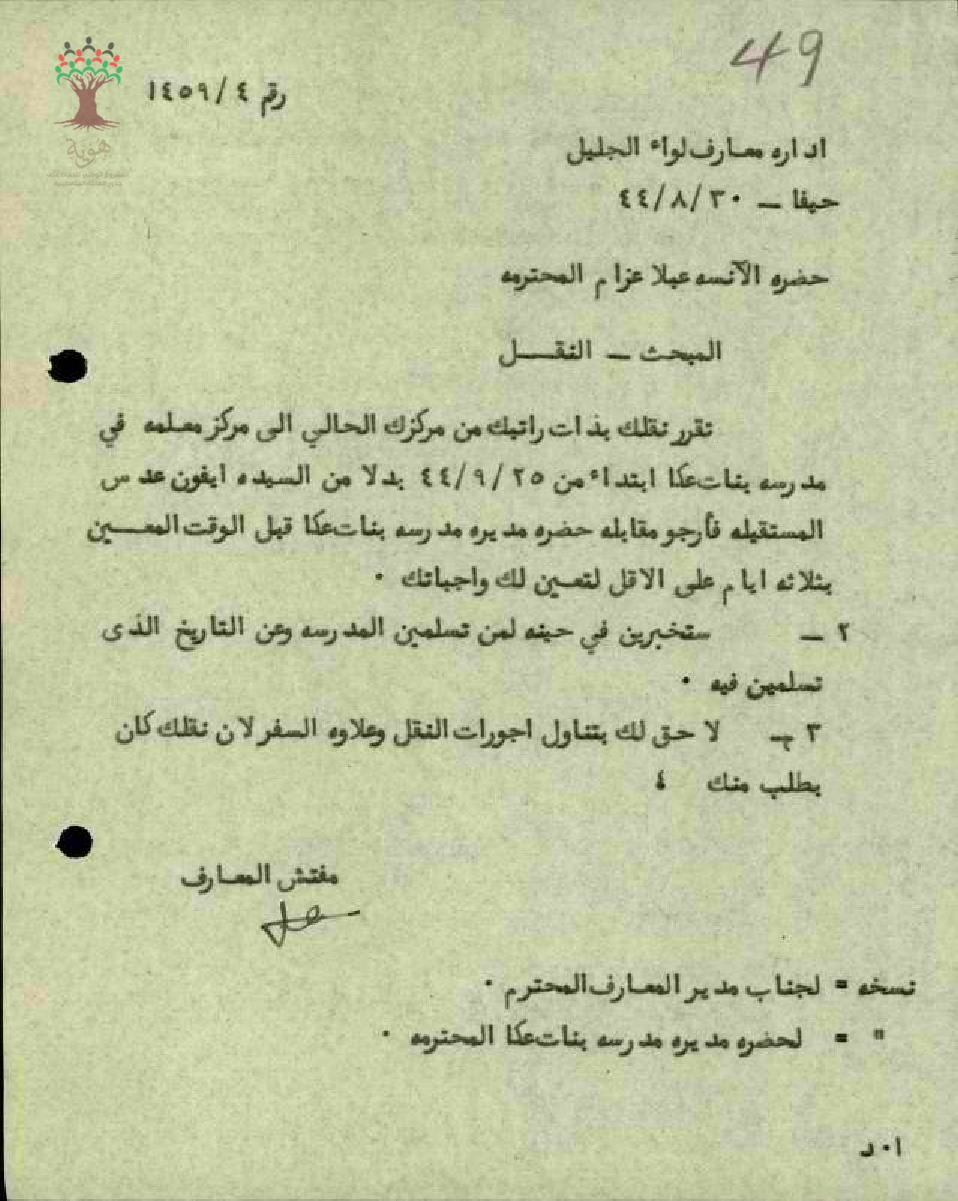 49
رقم ١٤٥٩/٤
هوية
اداره معارف لواء الجليل
حيفا — ٤٤/٨/٣٠
حضره الآنسه عبلا عزام المحترمه
المبحث — النقـــل
تقرر نقلك بذات راتبك من مركزك الحالي الى مركز معلمه في
مدرسه بنات عكا ابتداء من ٤٤/٩/٢٥ بدلا من السيده ايفون عدس
المستقيله فأرجو مقابله حضره مديره مدرسه بنات عكا قبل الوقت المعـــين
بثلاثه ايام على الاقل لتعين لك واجباتك .
٢ — ستخبرين في حينه لمن تسلمين المدرسه وعن التاريخ الذى
تسلمين فيه .
٣ — لا حق لك بتناول اجورات النقل وعلاوه السفر لان نقلك كان
بطلب منك ٤
مفتش المعارف
نسخه = لجناب مدير المعارف المحترم .
" = لحضره مديره مدرسه بنات عكا المحترمه .
ا.د